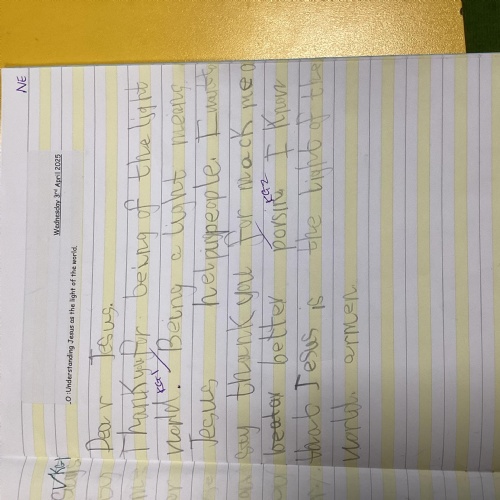 NE
Wednesday 3rd April 2025
LO: Understanding Jesus as the light of the world.
Dear Jesus.
Thank for being of the light
world. Being a light means
KG1
Jesus helping people. I
say thank you for mack me a
KG2
beator better porsin I know
that Jesus is the light of the
world. armen.